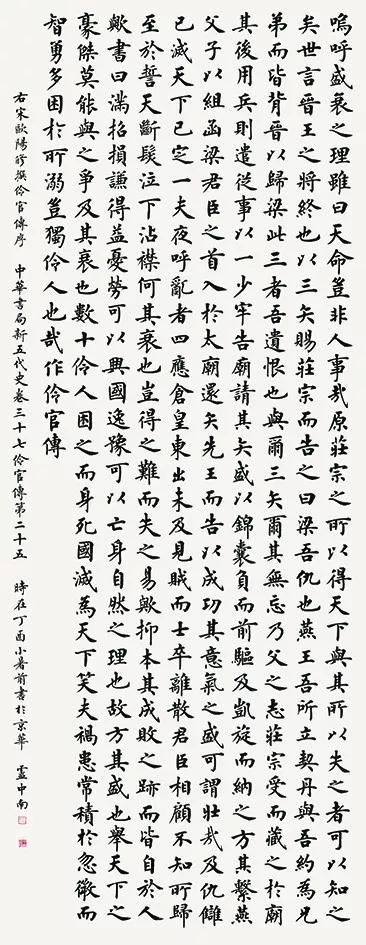 嗚呼盛衰之理雖曰天命豈非人事哉原莊宗之所以得天下與其所以失之者可以知之
矣世言晉王之將終也以三矢賜莊宗而告之曰梁吾仇也燕王吾所立契丹與吾約為兄
弟而皆背晉以歸梁此三者吾遺恨也與爾三矢爾其無忘乃父之志莊宗受而藏之於廟
其後用兵則遣從事以一少牢告廟請其矢盛以錦囊負而前驅及凱旋而納之方其繫燕
父子以組函梁君臣之首入於太廟還矢先王而告以成功其意氣之盛可謂壯哉及仇讎
已滅天下已定一夫夜呼亂者四應倉皇東出未及見賊而士卒離散君臣相顧不知所歸
至於誓天斷髮泣下沾襟何其衰也豈得之難而失之易歟抑本其成敗之跡而皆自於人
歟書曰滿招損謙得益憂勞可以興國逸豫可以亡身自然之理也故方其盛也舉天下之
豪傑莫能與之爭及其衰也數十伶人困之而身死國滅為天下笑夫禍患常積於忽微而
智勇多困於所溺豈獨伶人也哉作伶官傳
右宋歐陽脩撰伶官傳序 中華書局新五代史卷三十七伶官傳第二十五 時在丁酉小暑前書於京華 盧中南